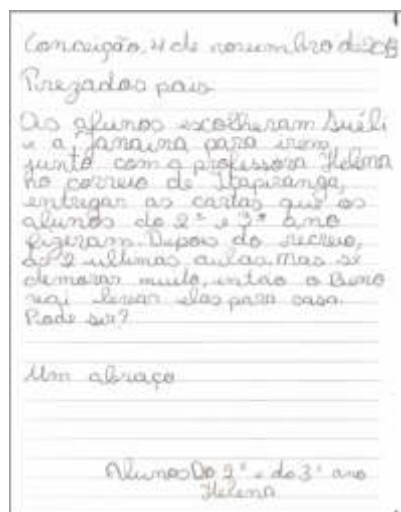 Conceição, 4 de novembro de 2013
Prezados pais
Os afunos escolheram Suéli
e a Janaina para irem
junto com a professora Helena
no correio de Itapiranga,
entregar as cartas que os
alunos do 2° e 3° ano
fizeram. Depois do recreio,
as 2 ultimas aulas. Mas se
demorar muito, então o Beno
vai levar elas para casa.
Pode ser?
Um abraço
Alunos Do 2° e do 3° ano
Helena